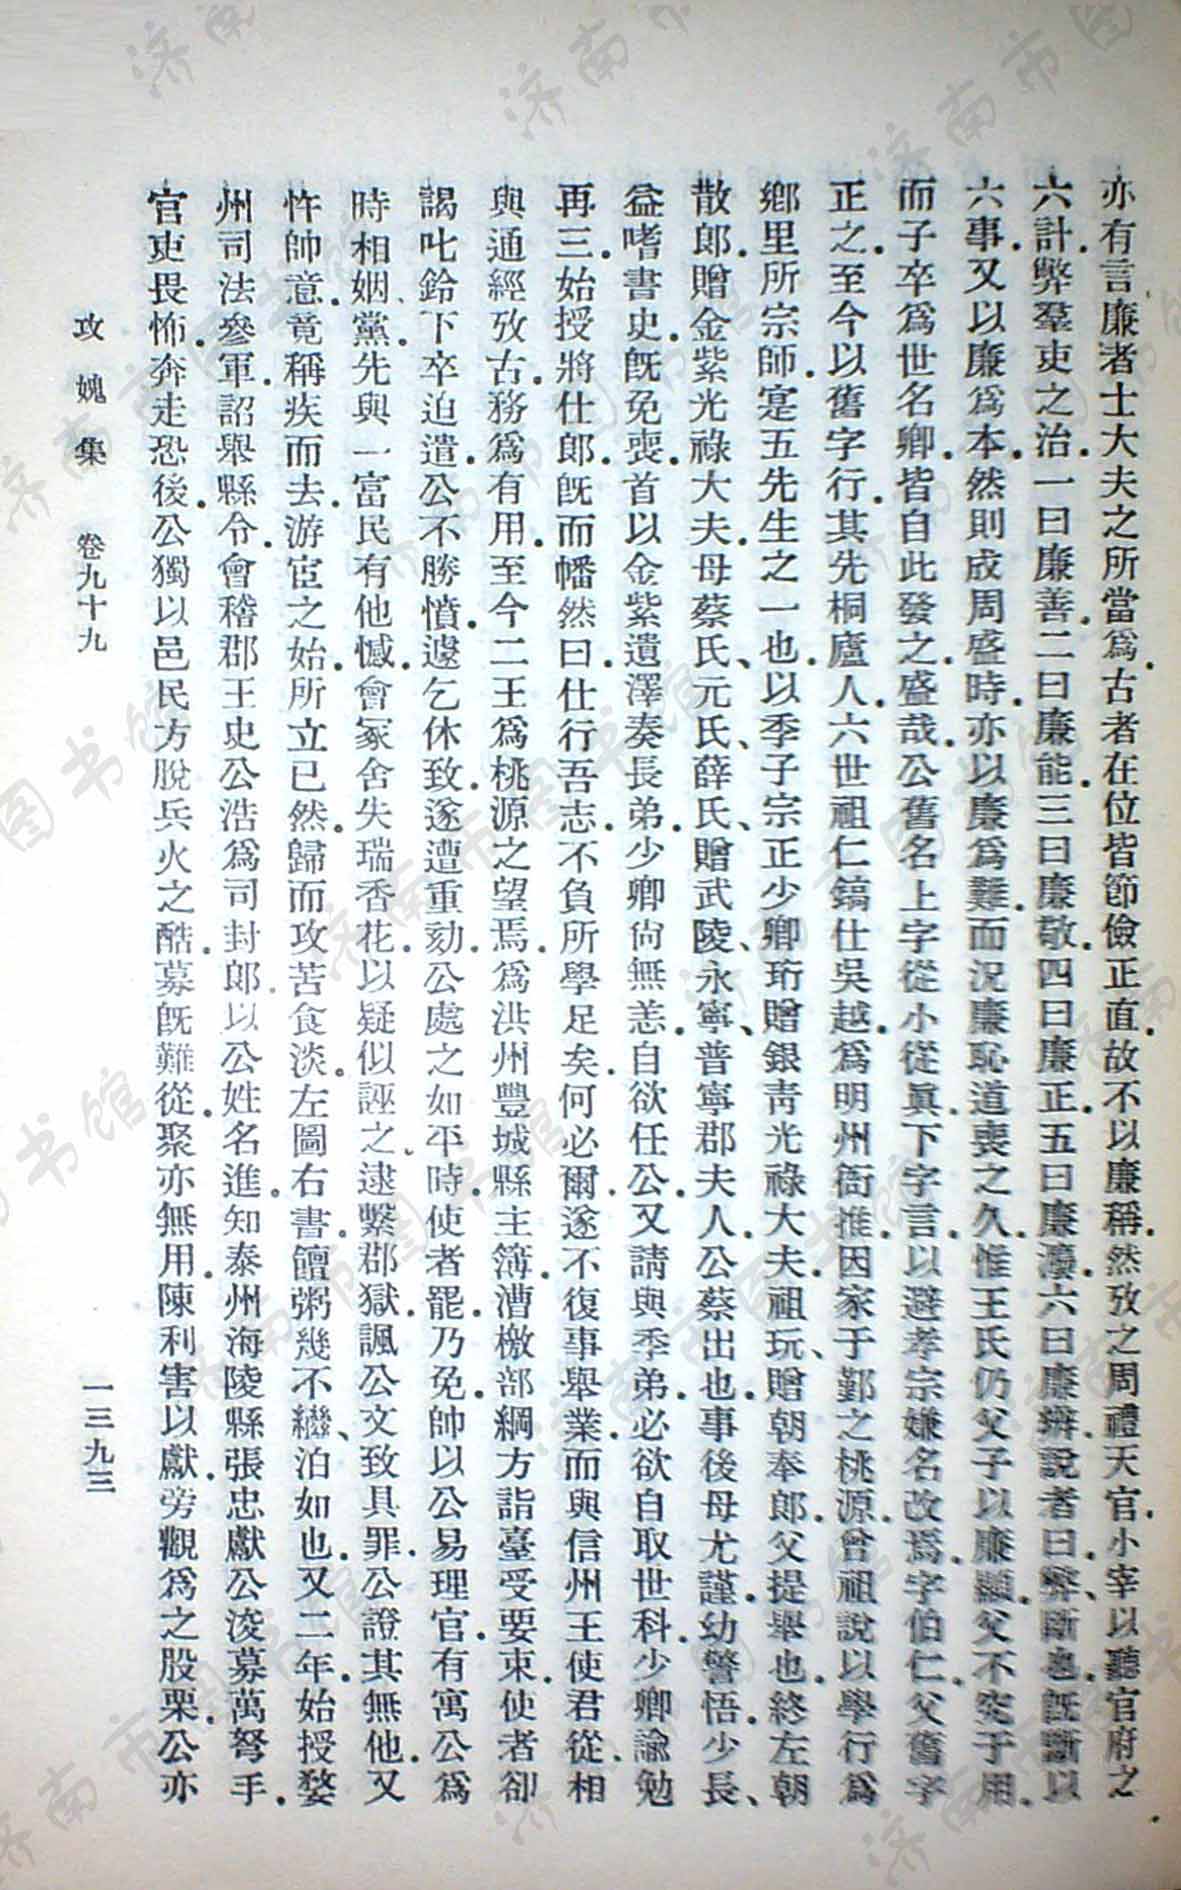 亦有言廉者士大夫之所當爲.古者在位皆節儉正直.故不以廉稱.然攷之周禮天官.小宰以聽官府之
六計.弊羣吏之治.一曰廉善.二曰廉能.三曰廉敬.四曰廉正.五曰廉灋.六曰廉辨.說者曰.弊、斷也.旣斷以
六事.又以廉爲本.然則成周盛時.亦以廉爲難.而況廉恥道喪之久.惟王氏仍父子以廉顯.父不究于用.
而子卒爲世名卿.皆自此發之.盛哉.公舊名上字從小從眞.下字言.以避孝宗嫌名改焉.字伯仁.父舊字
正之.至今以舊字行.其先桐廬人.六世祖仁鎬仕吳越.爲明州衙推.因家于鄞之桃源.曾祖說.以學行爲
鄉里所宗師.寔五先生之一也.以季子宗正少卿珩贈銀靑光祿大夫.祖玩、贈朝奉郎.父提舉也.終左朝
散郎.贈金紫光祿大夫.母蔡氏、元氏、薛氏、贈武陵、永寧、普寧郡夫人.公蔡出也.事後母尤謹.幼警悟.少長、
益嗜書史.旣免喪.首以金紫遺澤奏長弟.少卿尙無恙.自欲任公.又請與季弟.必欲自取世科.少卿諭勉
再三.始授將仕郎.旣而幡然曰.仕行吾志.不負所學足矣.何必爾.遂不復事舉業.而與信州王使君從.相
與通經攷古.務爲有用.至今二王爲桃源之望焉.爲洪州豐城縣主簿.漕檄部綱.方詣臺受要束.使者卻
謁.叱鈴下卒迫遣.公不勝憤.遽乞休致.遂遭重劾.公處之如平時.使者罷.乃免.帥以公易理官.有寓公爲
時相姻、黨.先與一富民有他憾.會冢舍失瑞香花.以疑似誣之.逮繫郡獄.諷公文致具罪.公證其無他.又
忤帥意.竟稱疾而去.游宦之始.所立已然.歸而攻苦食淡.左圖右書.饘粥幾不繼、泊如也.又二年.始授婺
州司法參軍.詔舉縣令.會稽郡王史公浩爲司封郎.以公姓名進.知泰州海陵縣.張忠獻公浚募萬弩手.
官吏畏怖.奔走恐後.公獨以邑民方脫兵火之酷.募旣難從.聚亦無用.陳利害以獻.旁觀爲之股栗.公亦
攻媿集 卷九十九 一三九三